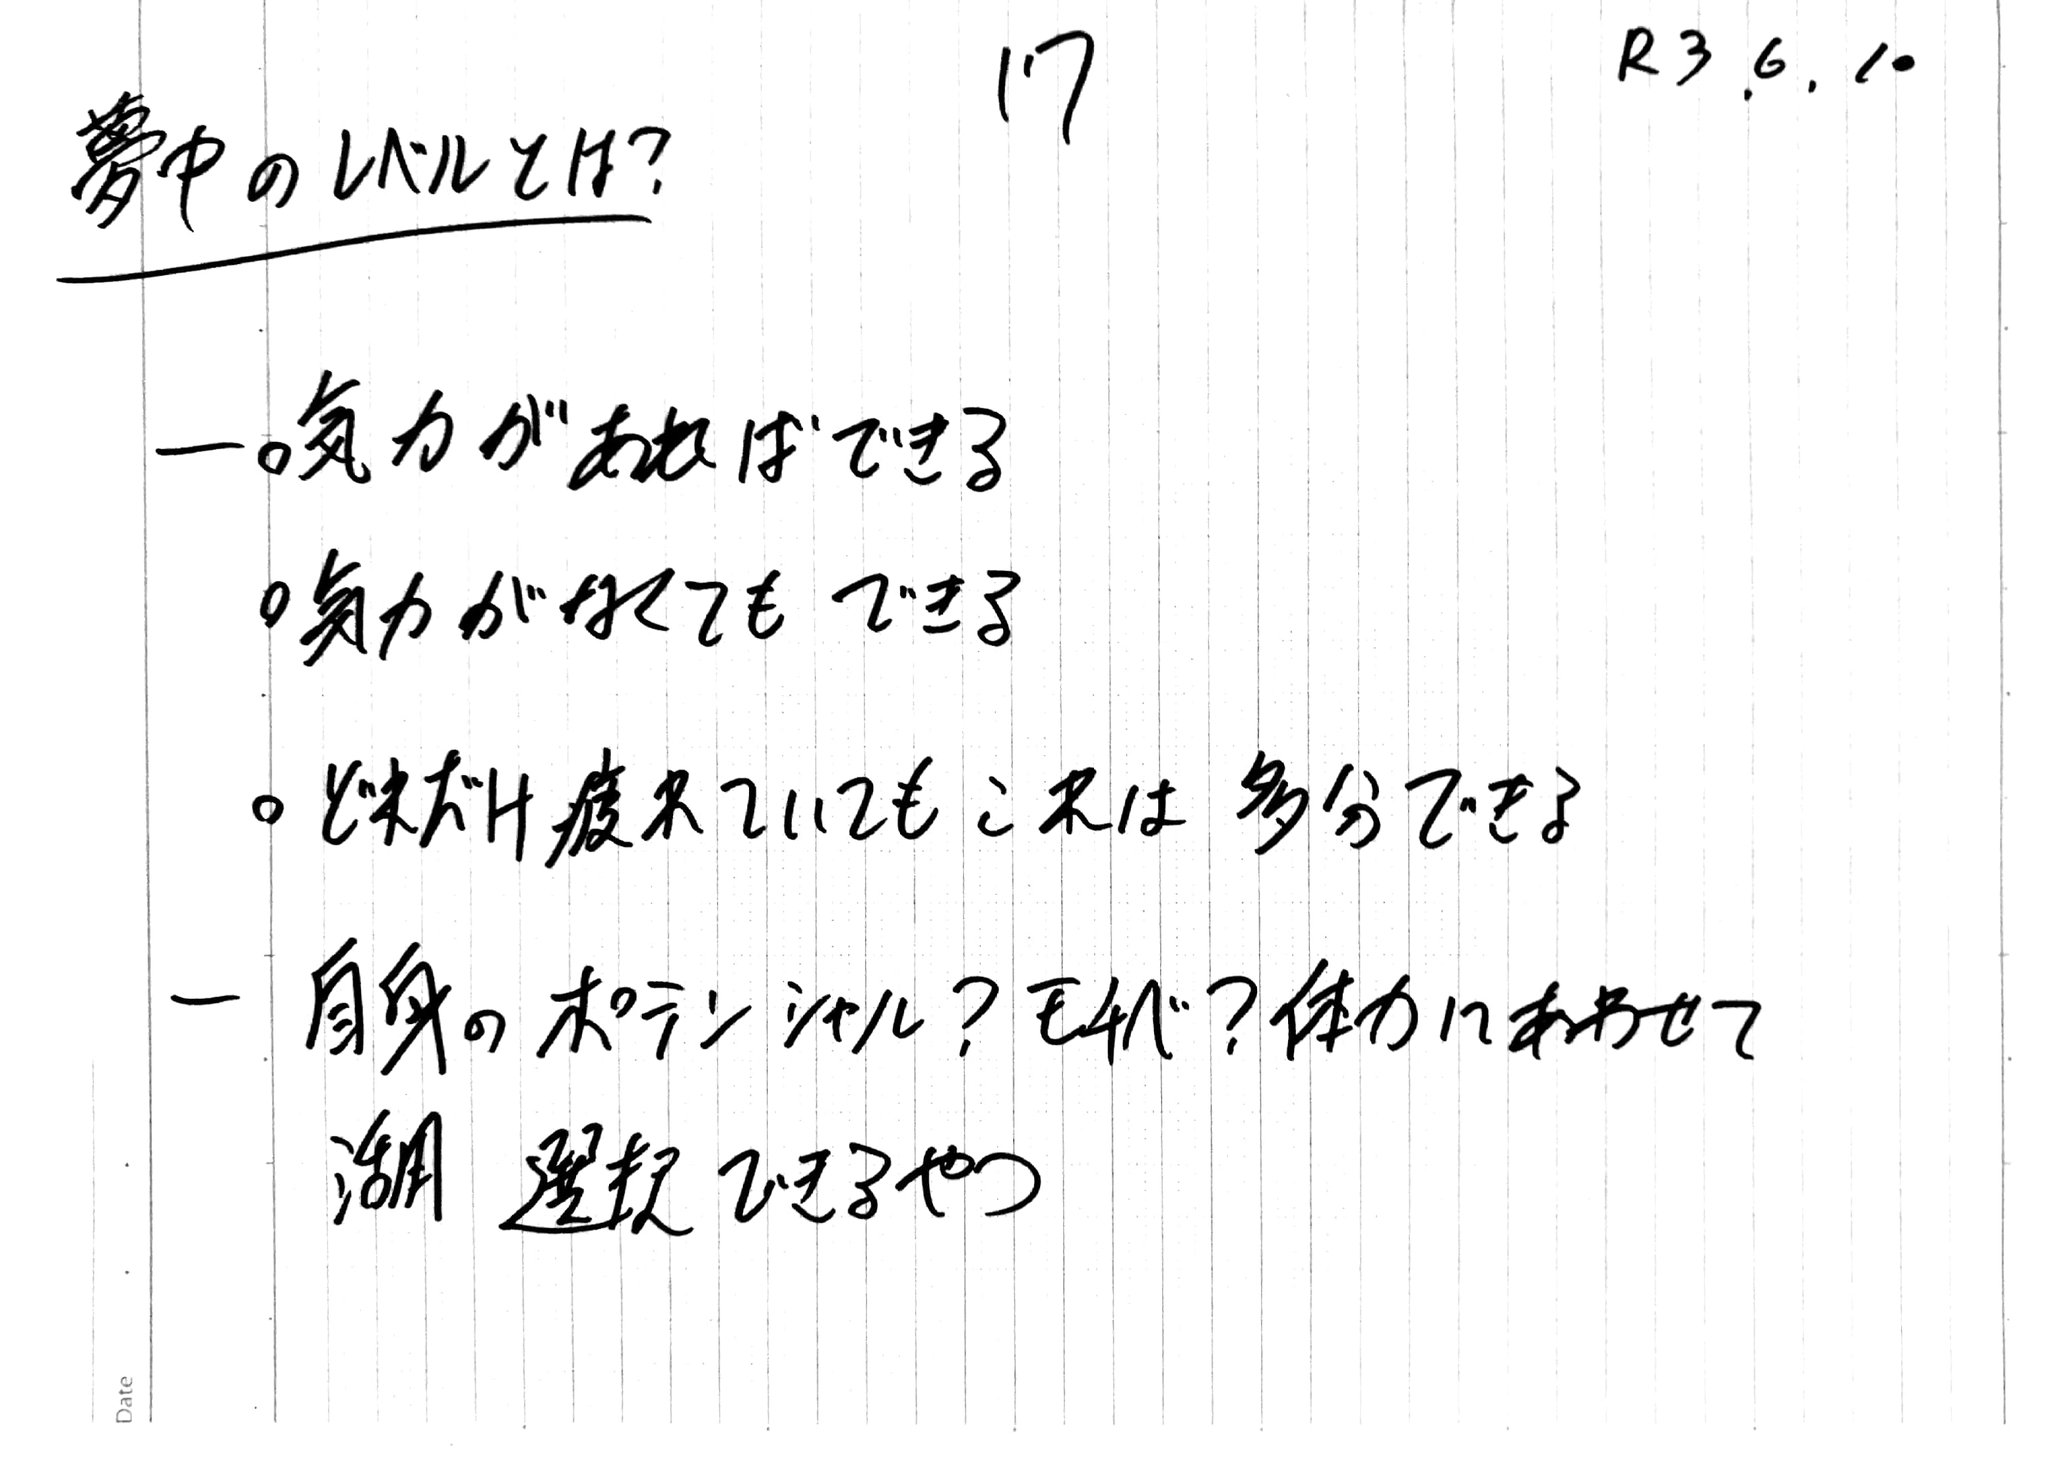 17
R3.6.10
夢中のレベルとは?
一 ○ 気力があればできる
○ 気力がなくてもできる
○ どれだけ疲れていてもこれは多分できる
一 自身のポテンシャル?モチベ?体力にあわせて
活用 選択できるやつ
Date